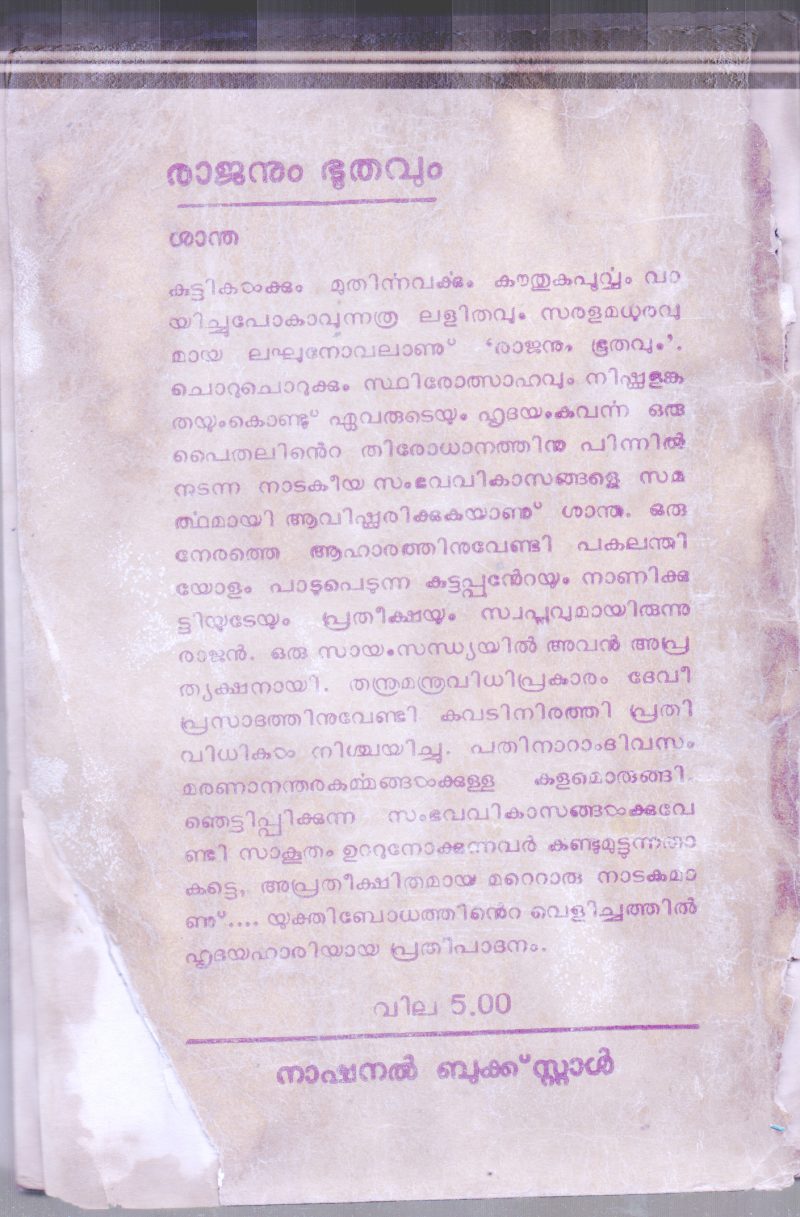 രാജനും ഭൂതവും
ശാന്ത
കുട്ടികൾക്കും മുതിൎന്നവൎക്കും കൗതുകപൂൎവ്വം വാ
യിച്ചുപോകാവുന്നത്ര ലളിതവും സരളമധുരവു
മായ ലഘുനോവലാണു് ‘രാജനും ഭൂതവും’.
ചൊറുചൊറുക്കും സ്ഥിരോത്സാഹവും നിഷ്കളങ്ക
തയുംകൊണ്ടു് ഏവരുടെയും ഹൃദയംകവൎന്ന ഒരു
പൈതലിൻെറ തിരോധാനത്തിനു പിന്നിൽ
നടന്ന നാടകീയ സംഭവവികാസങ്ങളെ സമ
ൎത്ഥമായി ആവിഷ്കരിക്കുകയാണു് ശാന്ത. ഒരു
നേരത്തെ ആഹാരത്തിനുവേണ്ടി പകലന്തി
യോളം പാടുപെടുന്ന കുട്ടപ്പൻേറയും നാണിക്കു
ട്ടിയുടേയും പ്രതീക്ഷയും സ്വപ്നവുമായിരുന്നു
രാജൻ. ഒരു സായംസന്ധ്യയിൽ അവൻ അപ്ര
ത്യക്ഷനായി. തന്ത്രമന്ത്രവിധിപ്രകാരം ദേവീ
പ്രസാദത്തിനുവേണ്ടി കവടിനിരത്തി പ്രതി
വിധികൾ നിശ്ചയിച്ചു. പതിനാറാംദിവസം
മരണാനന്തരകൎമ്മങ്ങൾക്കുള്ള കളമൊരുങ്ങി.
ഞെട്ടിപ്പിക്കുന്ന സംഭവവികാസങ്ങൾക്കുവേ
ണ്ടി സാകൂതം ഉററുനോക്കുന്നവർ കണ്ടുമുട്ടുന്നതാ
കട്ടെ, അപ്രതീക്ഷിതമായ മറെറാരു നാടകമാ
ണു്.... യുക്തിബോധത്തിൻെറ വെളിച്ചത്തിൽ
ഹൃദയഹാരിയായ പ്രതിപാദനം.
വില 5.00
നാഷനൽ ബുക്ക് സ്റ്റാൾ